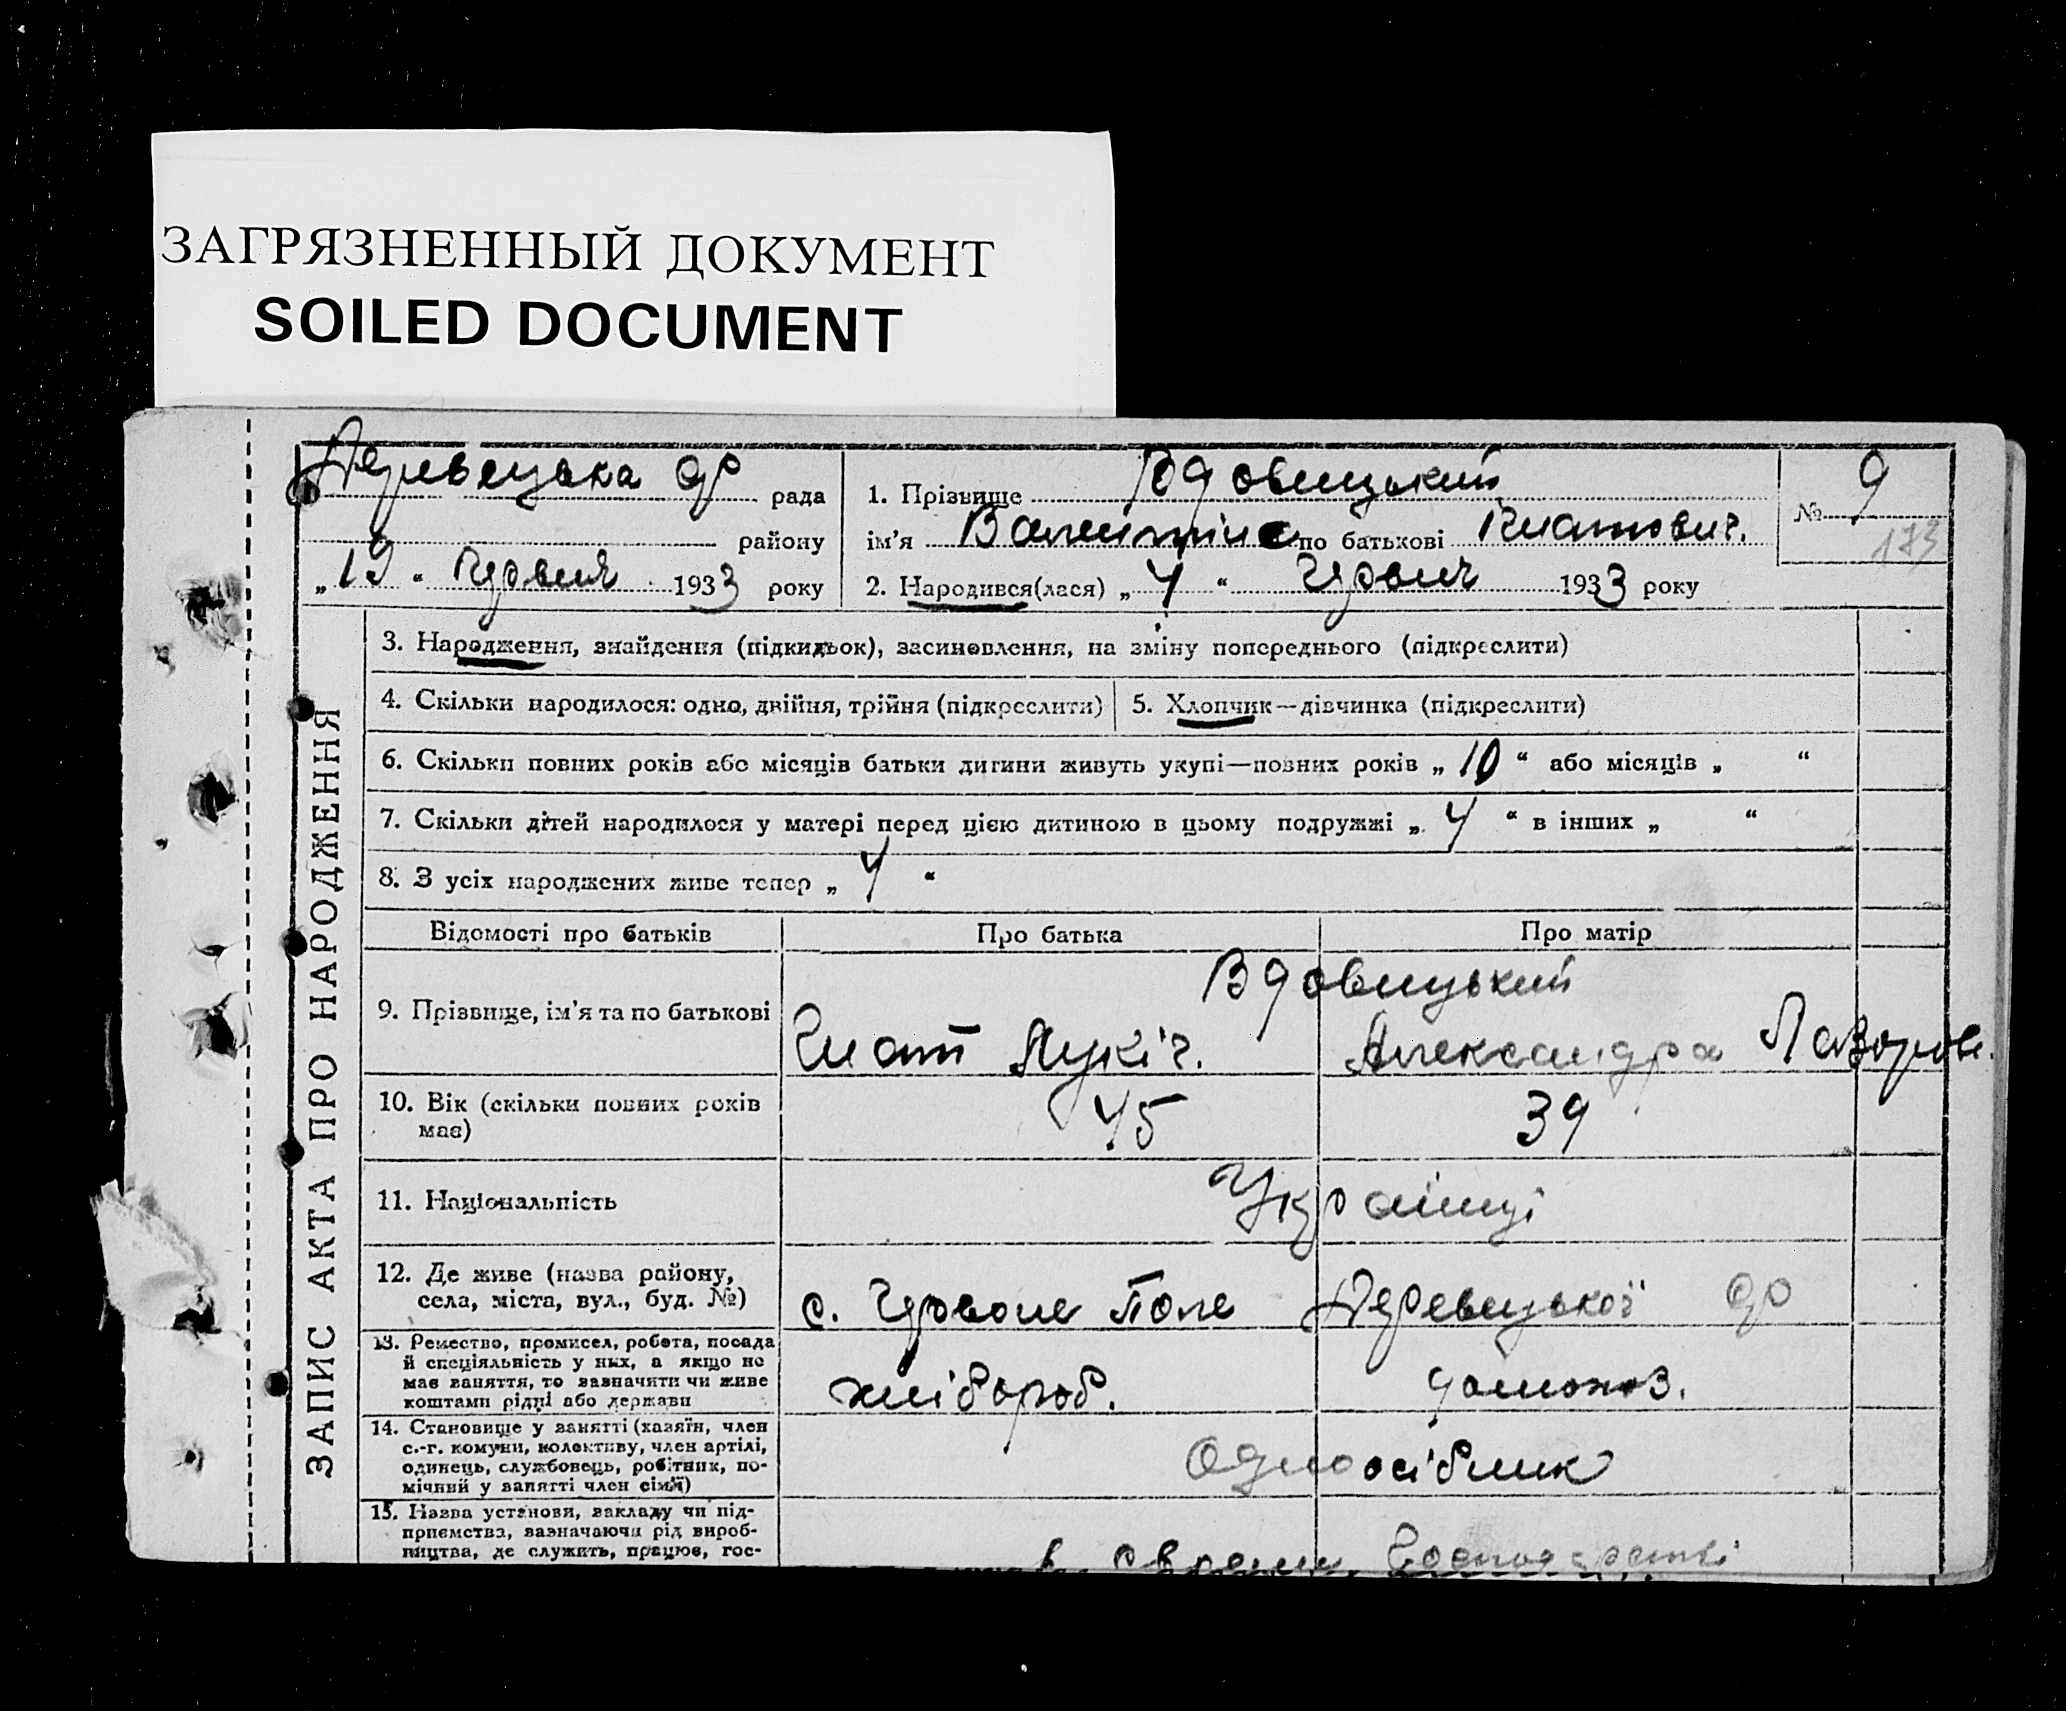 ЗАГРЯЗНЕННЫЙ ДОКУМЕНТ
SOILED DOCUMENT
Деревецька с/р рада
району
„19“ Червня 1933 року
1. Прізвище Вдовицький
ім'я Валентин по батькові Гнатович.
2. Народився(лася) „4“ Червня 1933 року
№ 9
173
ЗАПИС АКТА ПРО НАРОДЖЕННЯ
3. Народження, знайдення (підкидьок), засиновлення, на зміну попереднього (підкреслити)
4. Скільки народилося: одно, двійня, трійня (підкреслити)
5. Хлопчик—дівчинка (підкреслити)
6. Скільки повних років або місяців батьки дитини живуть укупі—повних років „10“ або місяців „ “
7. Скільки дітей народилося у матері перед цією дитиною в цьому подружжі „4“ в інших „ “
8. З усіх народжених живе тепер „4“
Відомості про батьків Про батька Про матір
9. Прізвище, ім'я та по батькові
Вдовицький
Гнат Лукіч. Александра Лазоров.
10. Вік (скільки повних років має)
45 39
11. Національність
Українці
12. Де живе (назва району, села, міста, вул., буд. №)
с. Червоне Поле Деревецької с/р
13. Ремество, промисел, робота, посада
й спеціяльність у них, а якщо не
має заняття, то зазначити чи живе
коштами рідні або держави
хлібороб. домохоз.
14. Становище у занятті (хазяїн, член
с.-г. комуни, колективу, член артілі,
одинець, службовець, робітник, по-
мічний у занятті член сім'ї)
Одноосібник
15. Назва установи, закладу чи під-
приємства, зазначаючи рід вироб-
ництва, де служить, працює, гос-
в своєму господарстві